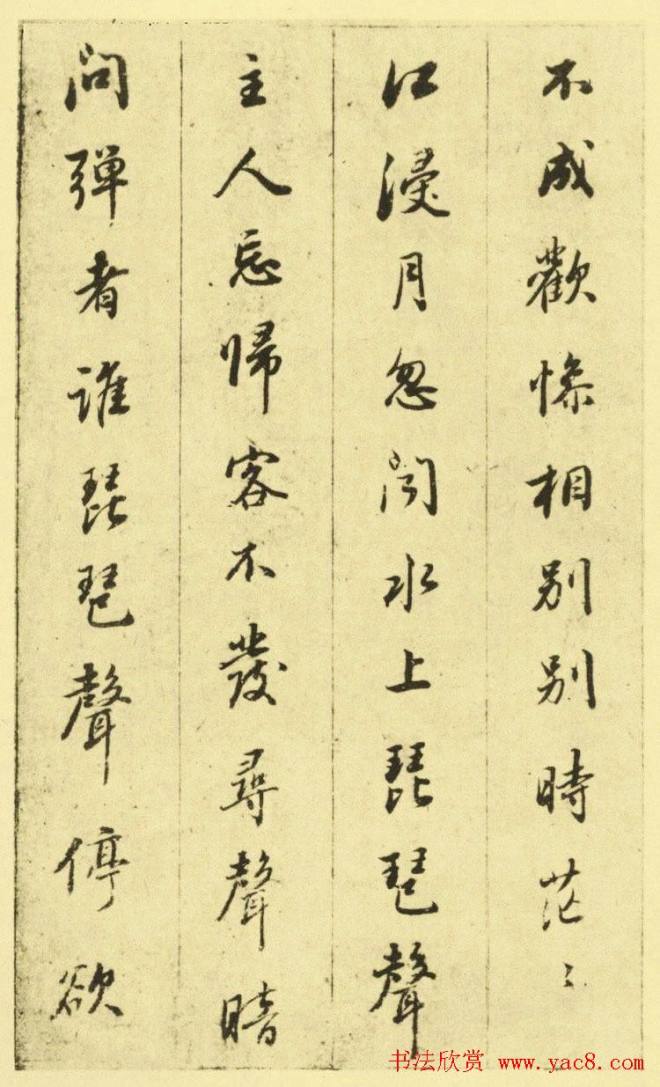 不成歡慘相別別時茫〻
江浸月忽聞水上琵琶聲
主人忘歸客不發尋聲暗
問彈者誰琵琶聲停欲
书法欣赏 www.yac8.com